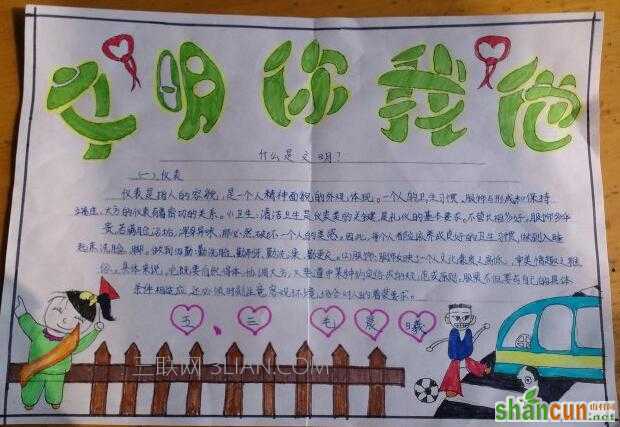 文明你我他
什么是文明？
(一)、仪表
仪表是指人的容貌，是一个人精神面貌的外观体现。一个人的卫生习惯、服饰与形成和保持
端庄、大方的仪表有着密切的关系。(1)卫生：清洁卫生是仪容美的关键，是礼仪的基本要求。不管长相多好，服饰多华
贵，若满脸污垢，浑身异味，那必然破坏一个人的美感。因此，每个人都应该养成良好的卫生习惯，做到入睡
起床洗脸、脚，
服饰：服饰反映了一个人文化素质之高低，审美情趣之雅
俗。具体来说，它既要自然得体，协调大方，又要遵守某种约定俗成的规范或原则。服装不但要与自己的具体
条件相适应，还必须时刻注意客观环境、场合对人的着装要求。
五、三 毛晨曦
三联网 3LIAN.COM
shancun
.net